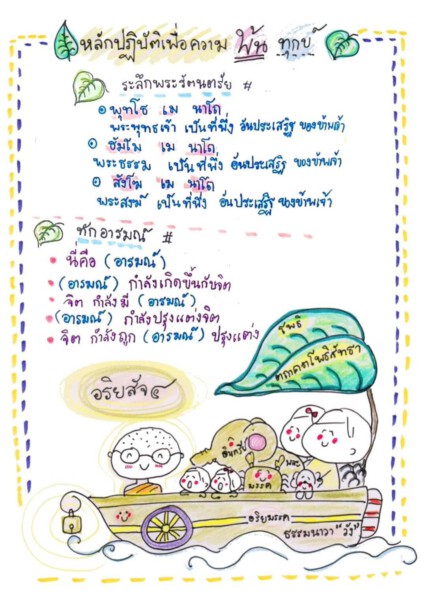 หลักปฏิบัติเพื่อความ พ้น ทุกข์
ระลึกพระรัตนตรัย #
๏ พุทโธ เม นาโถ
พระพุทธเจ้า เป็นที่พึ่ง อันประเสริฐ ของข้าพเจ้า
๏ ธัมโม เม นาโถ
พระธรรม เป็นที่พึ่ง อันประเสริฐ ของข้าพเจ้า
๏ สังโฆ เม นาโถ
พระสงฆ์ เป็นที่พึ่ง อันประเสริฐ ของข้าพเจ้า
ทักอารมณ์ #
นี่คือ (อารมณ์)
(อารมณ์) กำลังเกิดขึ้นกับจิต
จิต กำลังมี (อารมณ์)
(อารมณ์) กำลังปรุงแต่งจิต
จิต กำลังถูก (อารมณ์) ปรุงแต่ง
โพธิ
ตถาคตโพธิสัทธา
อริยสัจ๔
อินทรีย์
พละ
มรรค
อริยมรรค
ธรรมนาวา "วัง"